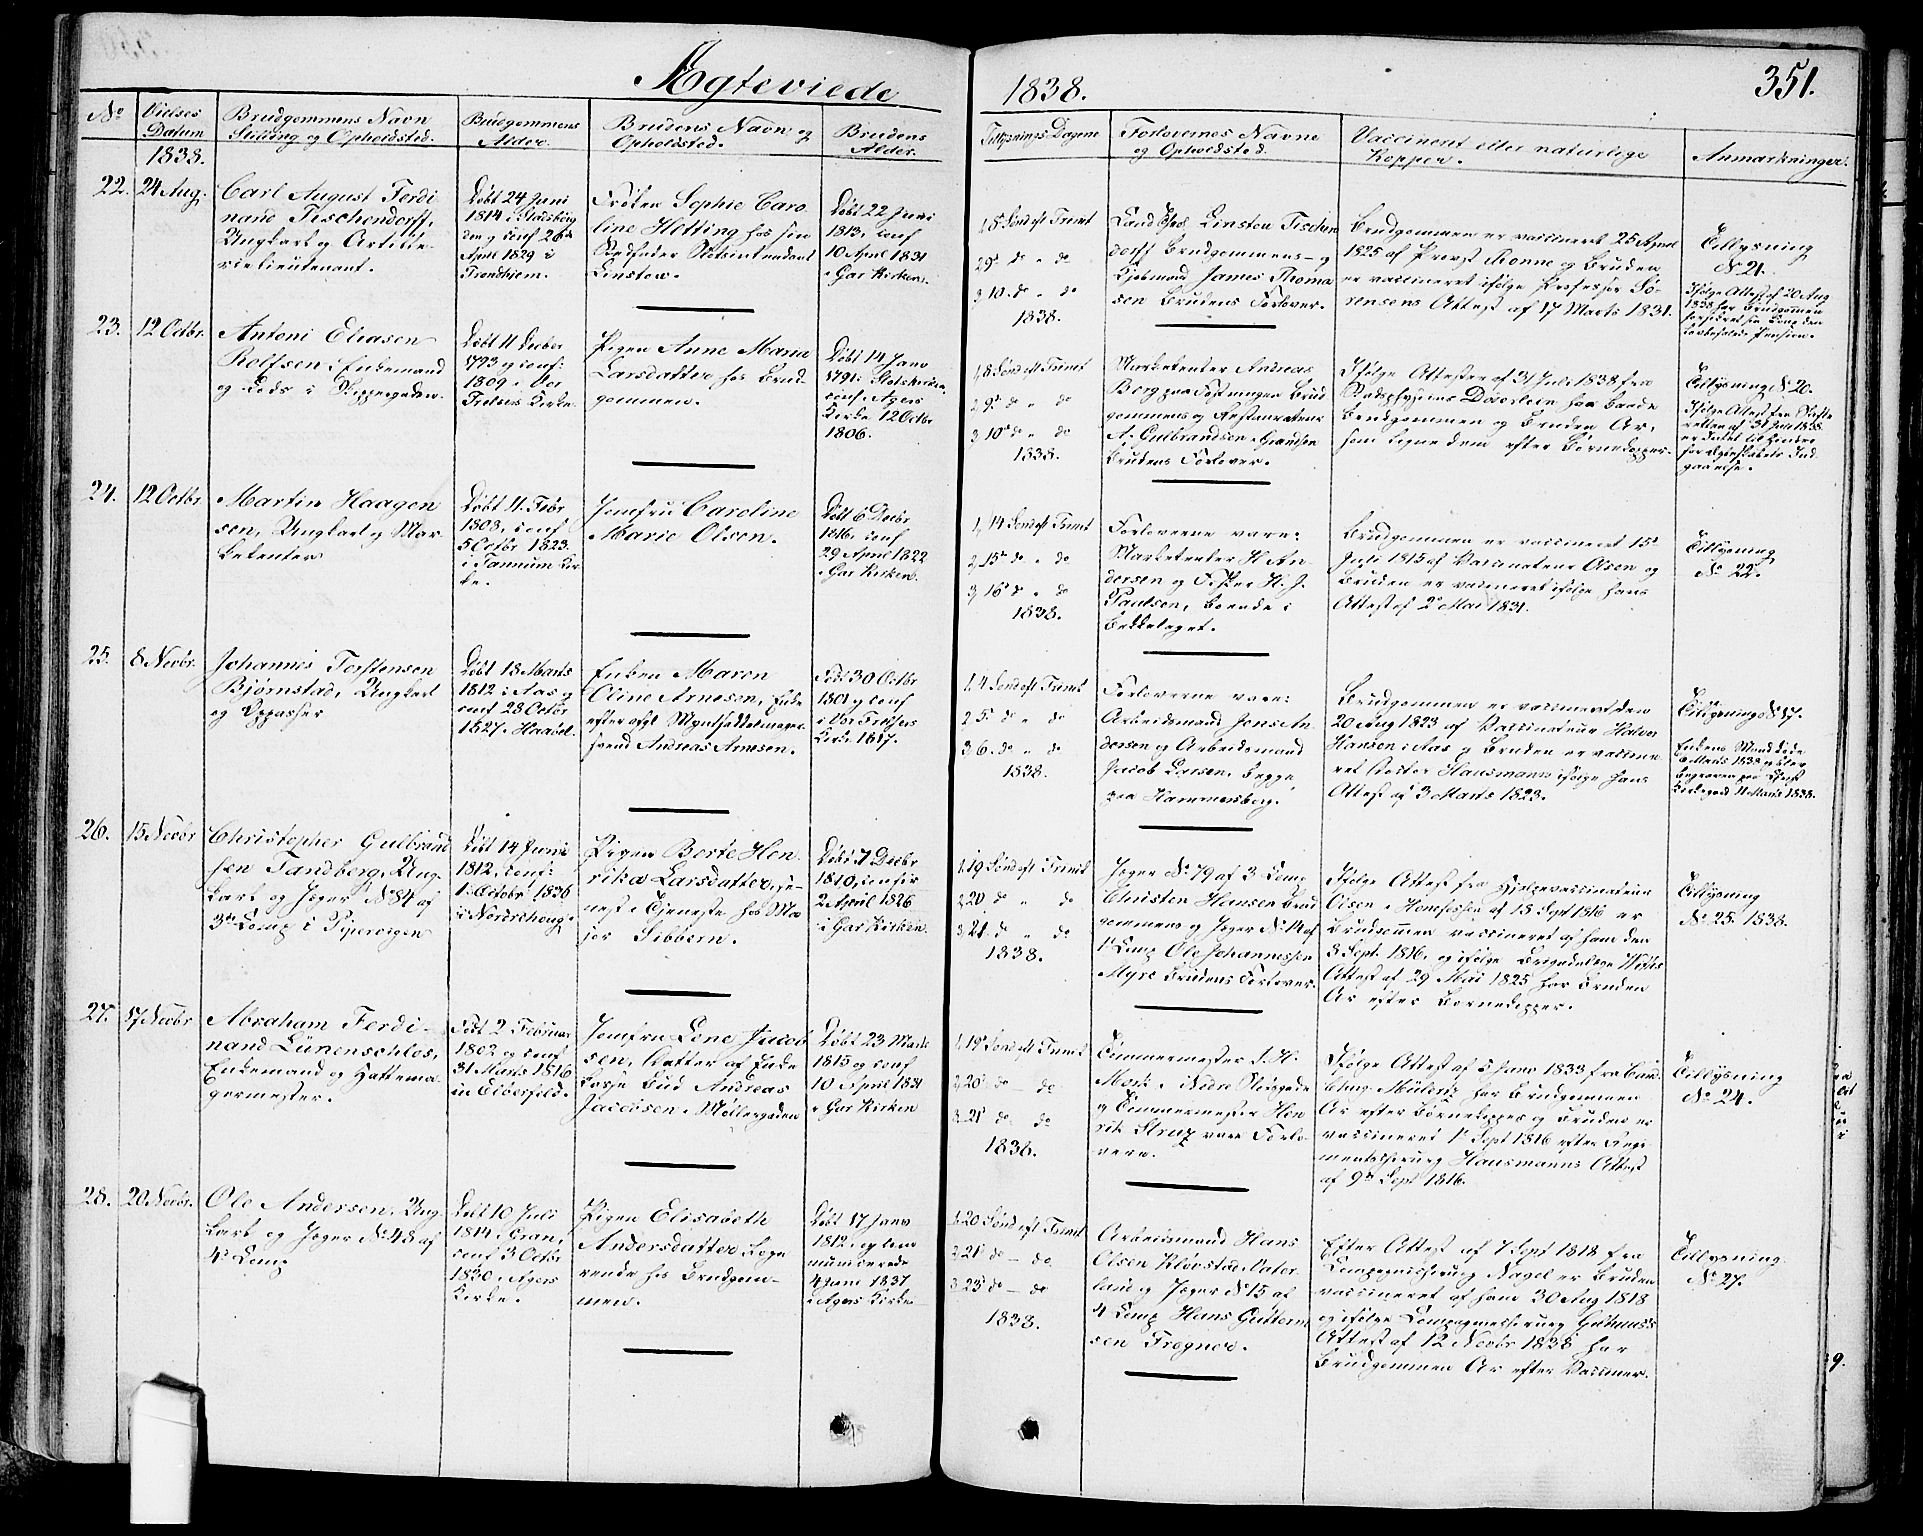 Ægteviede 1838. 351.
No
Vielses Datum
Brudgommens Navn Stilling og Opholdsted.
Brudgommens Alder.
Brudens Navn og Opholdsted.
Brudens Alder.
Tillysnings Dagene
Forlovernes Navne og Opholdsted.
Vaccineret eller naturlige Kopper.
Anmærkninger.
1838.
22.
24 Aug.
Carl August Ferdi
nand Tischendorff,
Ungkarl og Artille
rielieutenant.
Døbt 24 Juni
1814 i
conf 26
April 1829 i
Trondhjem.
Frøken Sophie Caro
line Hetting hos sin
Slotsintendant
Linstow.
Døbt 22 Juni
1813, conf
10 April 1831
i Gar Kirken.
1, 8 Sønd eft Trinit
2 9de do " do
3 10. do " do
1838.
Linstow Tischen
dorff Brudgommens og
Kjøbmand James Thoma
sen Brudens Forlover.
Brudgommen er vaccineret 25 April
1825 af Provst Rønne og Bruden
er vaccineret ifølge Professor Sø-
rensens Attest af 17 Marts 1831.
Tillysning
No 21.
Ifølge Attest af 20 Aug
1838 har Brudgommen
23.
12 Octbr.
Antoni Eliasen
Rolfsen, Enkemand
og Lods i Pippervigen.
Døbt 11 Decbr
1793 og conf:
1809 i Vor
Frelsers Kirke.
Pigen Anne Maria
Larsdatter hos Brud
gommen.
Døbt 14 Janv
1791 i Slotskirken
conf. i Agers
Kirke 12 Octbr
1806.
1, 8 Sønd eft Trinit
2 9de do " do
3 10de do " do
1838.
Marketenter Andreas
Berg paa Fæstningen Brud
gommens og Restaurateur
A. Gulbrandsen i Grændsen
Brudens Forlover.
Ifølge Attester af 31 Juli 1838 fra
Stadsphysicus Døderlein har baade
Brudgommen og Bruden Ar,
som ligne dem efter Børnekopper.
Tillysning No 20.
Ifølge Attest fra Skifte
retten af 31 Juli 1838
er Intet til Hinder
for Ægteskabets Ind
gaaelse.
24.
12 Octbr
Martin Haagen
sen, Ungkarl og Mar
ketenter
Døbt 11. Febr
1808, conf
5 Octbr 1823
i Tannum Kir
ke.
Jomfru Caroline
Marie Olsen.
Døbt 6 Decbr
1816, conf
29 April 1822
i Gar Kirken.
1, 14 Sønd eft Trinit
2, 15de do " do
3, 16 do " do
1838.
Forloverne vare:
Marketenter H. An
dersen og Fisker H. J.
Paulsen, boende i
Bekkelaget.
Brudgommen er vaccineret 15de
Juli 1815 af Vaccinateur Olsen og
Bruden er vaccineret ifølge hans
Attest af 2 Mai 1831.
Tillysning
No 22.
25.
8 Novbr.
Johannes Torstensen
Bjørnstad, Ungkarl
og Oppasser
Døbt 18 Marts
1812 i Aas og
conf 28 Octbr
1827. Haabøl.
Enken Maren
Oline Arnesen, Enke
efter afd Myntsaddelmager
svend Andreas Arnesen.
Født 30 Octbr
1801 og conf
i Vor Frelsers
Kirke 1817.
1, 4 Sønd eft Trinit
2, 5. do " do
3 6. do " do
1838.
Forloverne vare:
Arbeidsmand Jens An
dersen og Arbeidsmand
Jacob Larsen, begge
paa Hammersberg.
Brudgommen er vaccineret den
20 Aug 1823 af Vaccinateur Halvor
Hansen i Aas og Bruden er vaccine
ret Doctor Hausmann ifølge hans
Attest af 3 Marts 1823.
Tillysning No 17.
Enkens Mand døde
Marts 1838 og blev
begraven paa Christ
Kirkegård 11 Marts 1838.
26.
15 Novbr
Christopher Gulbrand
sen Tandberg, Ung
karl og Jæger No 84 af
3de Comp i Pipervigen
Døbt 14 Juni
1812, conf:
1 Octobr 1826
i Norderhoug.
Pigen Berte Hen
rika Larsdatter, se
nest i Tjeneste hos Ma
jor Sibbern.
Døbt 7 Decbr
1810, confir
2 April 1826
i Gar Kirken.
1, 19 Sønd eft Trinit
2, 20 do " do
3, 21. do " do
1838.
Jæger No 79 af 3 Comp
Christen Hansen Brud
gommens og Jæger No 14 af
1ste Comp Ole Johannessen
Myre Brudens Forlover.
Ifølge Attest fra Hjelpevaccinateur
Olsen i Hønefossen af 18 Sept 1816 er
Brudgommen vaccineret af ham den
3 Sept. 1816. og ifølge Brigadelæge
Attest af 29 Mai 1825 har Bruden
Ar efter Børnekopper.
Tillysning
No 25. 1838.
27.
17 Novbr
Abraham Ferdi-
nand Lünenschlos,
Enkemand og Hattema
germester.
Født 2 Februar
1802 og conf
31 Marts 1816
in Elberfeld.
Jomfru Lene Jacob
sen, Datter af Enke
Bud Andreas
Jacobsen i Møllergaden
Døbt 23 Marts
1815 og conf
10 April 1831
i Gar Kirken
1, 19de Sønd eft Trinit
2, 20de do — do
3. 21de do. do
1838.
Tømmermester J. H.
Mork i Nedre Slotsgade
og Tømmermester Hen
rik Strup vare Forlo-
vere.
Ifølge Attest af 5 Janv 1833 fra
har Brudgommen
Ar efter Børnekopper og Bruden er
vaccineret 1ste Sept 1816 efter Regi
mentschirurg Hausmanns Attest
af 9de Sept 1816.
Tillysning
No 24.
28.
20 Novbr.
Ole Andersen, Ung
karl og Jæger No 48 af
4de Comp
Døbt 10 Juli
1814 i Gran,
conf 3 Octbr
1830 i Agers
Kirke.
Pigen Elisabeth
Andersdatter Loge
rende hos Brudgom-
men.
Døbt 17 Janv
1812, og com
municerede
4 Juni 1837
i Agers Kirke
1. 20 Sønd eft Trinit
2. 21de do — do
3. 23de do — do
1838.
Arbeidsmand Hans
Olsen Kløvstad Vater
land og Jæger No 15 af
4 Comp Hans Guttorm
sen Frogner.
Efter Attest af 7 Sept 1818 fra
Compagnichirurg Nagel er Bruden
vaccineret af ham 30 Aug 1818
og ifølge Compagniechirurg
Attest af 12 Novbr 1838 har
Brudgommen Ar efter Vacciner.
Tillysning
No 27.